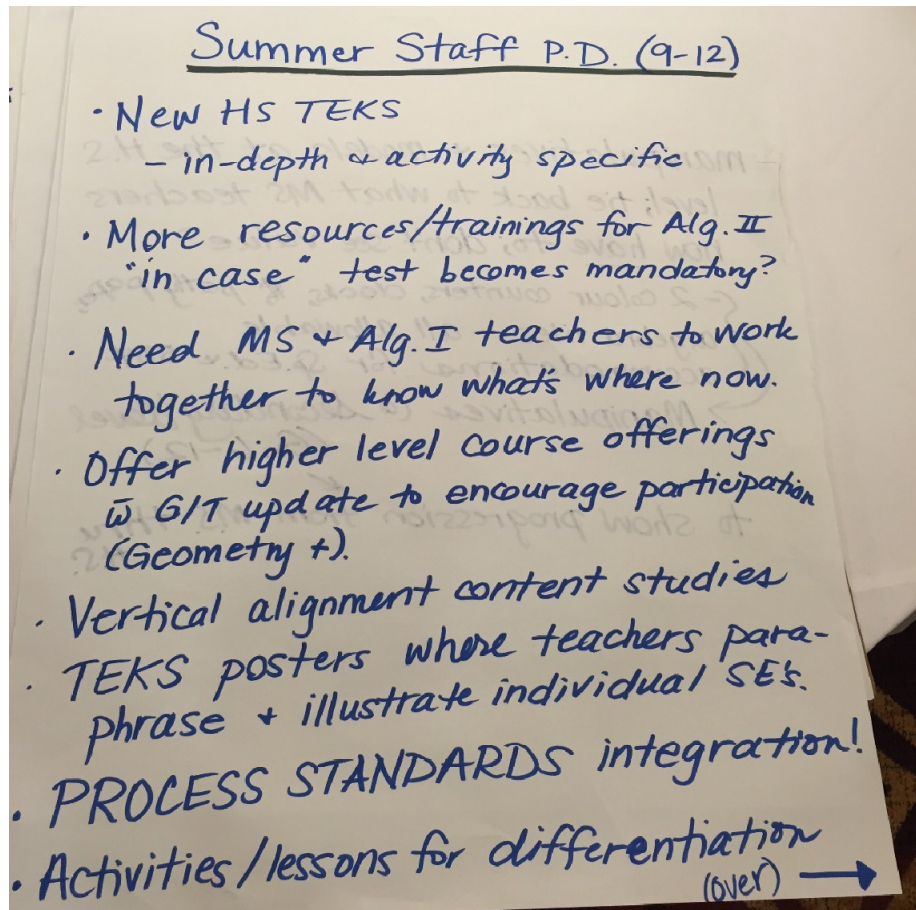 Summer Staff P.D. (9-12)
· New HS TEKS
- in-depth & activity specific
· More resources/trainings for Alg. II
"in case" test becomes mandatory?
· Need MS & Alg. I teachers to work
together to know what's where now.
· Offer higher level course offerings
w̄ G/T update to encourage participation
(Geometry +).
· Vertical alignment content studies
· TEKS posters where teachers para-
phrase & illustrate individual SE's.
· PROCESS STANDARDS integration!
· Activities/lessons for differentiation
(over) →